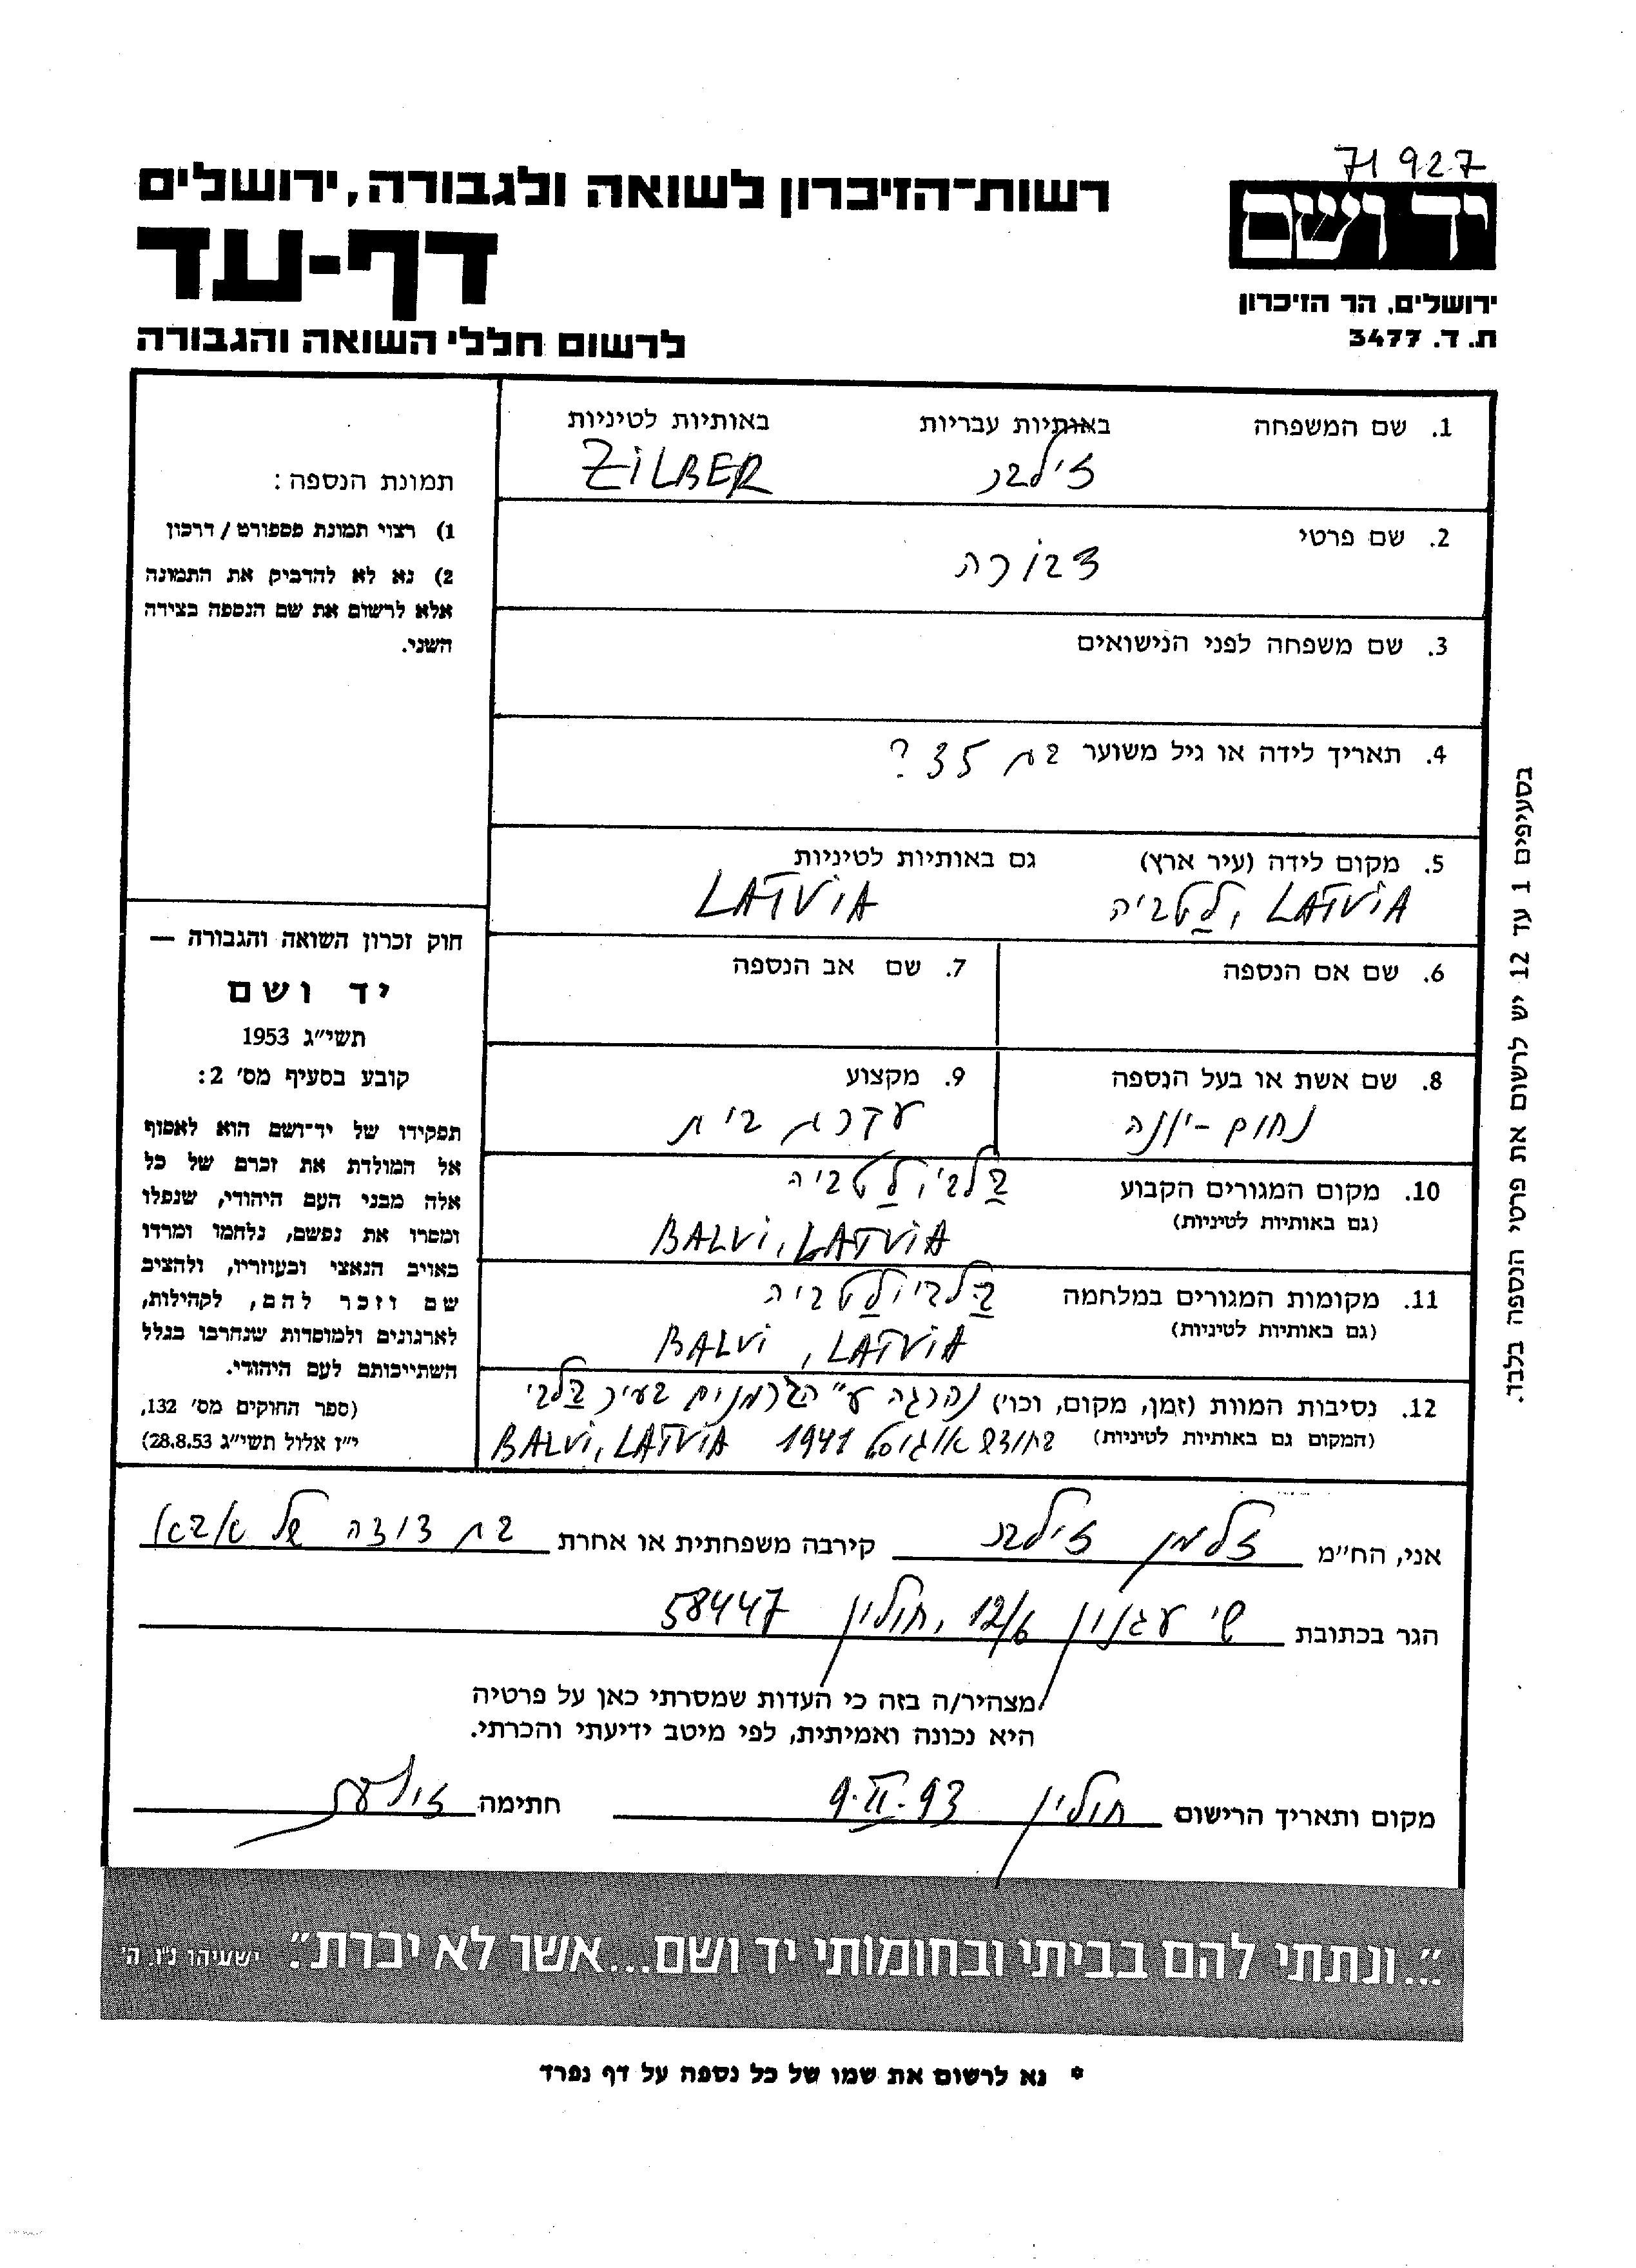 71927
יד ושם
ירושלים, הר הזיכרון
ת. ד. 3477
רשות־הזיכרון לשואה ולגבורה, ירושלים
דף-עד
לרשום חללי השואה והגבורה
1. שם המשפחה באותיות עבריות באותיות לטיניות
זילבר ZILBER
2. שם פרטי
דבורה
3. שם משפחה לפני הנישואים
4. תאריך לידה או גיל משוער בת 35 ?
5. מקום לידה (עיר ארץ) גם באותיות לטיניות
LATVIA, לַטביה LATVIA
6. שם אם הנספה 7. שם אב הנספה
8. שם אשת או בעל הנספה 9. מקצוע
נחום-יונה עקרת בית
10. מקום המגורים הקבוע בַּלבי, לַטביה
(גם באותיות לטיניות) BALVI, LATVIA
11. מקומות המגורים במלחמה בַּלבי, לַטביה
(גם באותיות לטיניות) BALVI, LATVIA
12. נסיבות המוות (זמן, מקום, וכו') נהרגה ע"י הגרמנים בעיר בַּלבי
(המקום גם באותיות לטיניות) בחודש אוגוסט 1941 BALVI, LATVIA
תמונת הנספה :
1) רצוי תמונת פספורט / דרכון
2) נא לא להדביק את התמונה
אלא לרשום את שם הנספה בצידה
השני.
חוק זכרון השואה והגבורה —
יד ושם
תשי"ג 1953
קובע בסעיף מס' 2:
תפקידו של יד־ושם הוא לאסוף
אל המולדת את זכרם של כל
אלה מבני העם היהודי, שנפלו
ומסרו את נפשם, נלחמו ומרדו
באויב הנאצי ובעוזריו, ולהציב
שם וזכר להם, לקהילות,
לארגונים ולמוסדות שנחרבו בגלל
השתייכותם לעם היהודי.
(ספר החוקים מס' 132,
י"ז אלול תשי"ג 28.8.53)
בסעיפים 1 עד 12 יש לרשום את פרטי הנספה בלבד.
אני, הח"מ זלמן זילבר קירבה משפחתית או אחרת בת דודה של אבא
הגר בכתובת ש"י עגנון 12/6, חולון 58447
מצהיר/ה בזה כי העדות שמסרתי כאן על פרטיה
היא נכונה ואמיתית, לפי מיטב ידיעתי והכרתי.
מקום ותאריך הרישום חולון 9.II.93 חתימה
"...ונתתי להם בביתי ובחומותי יד ושם...אשר לא יכרת". ישעיהו נ"ו. ה'
* נא לרשום את שמו של כל נספה על דף נפרד